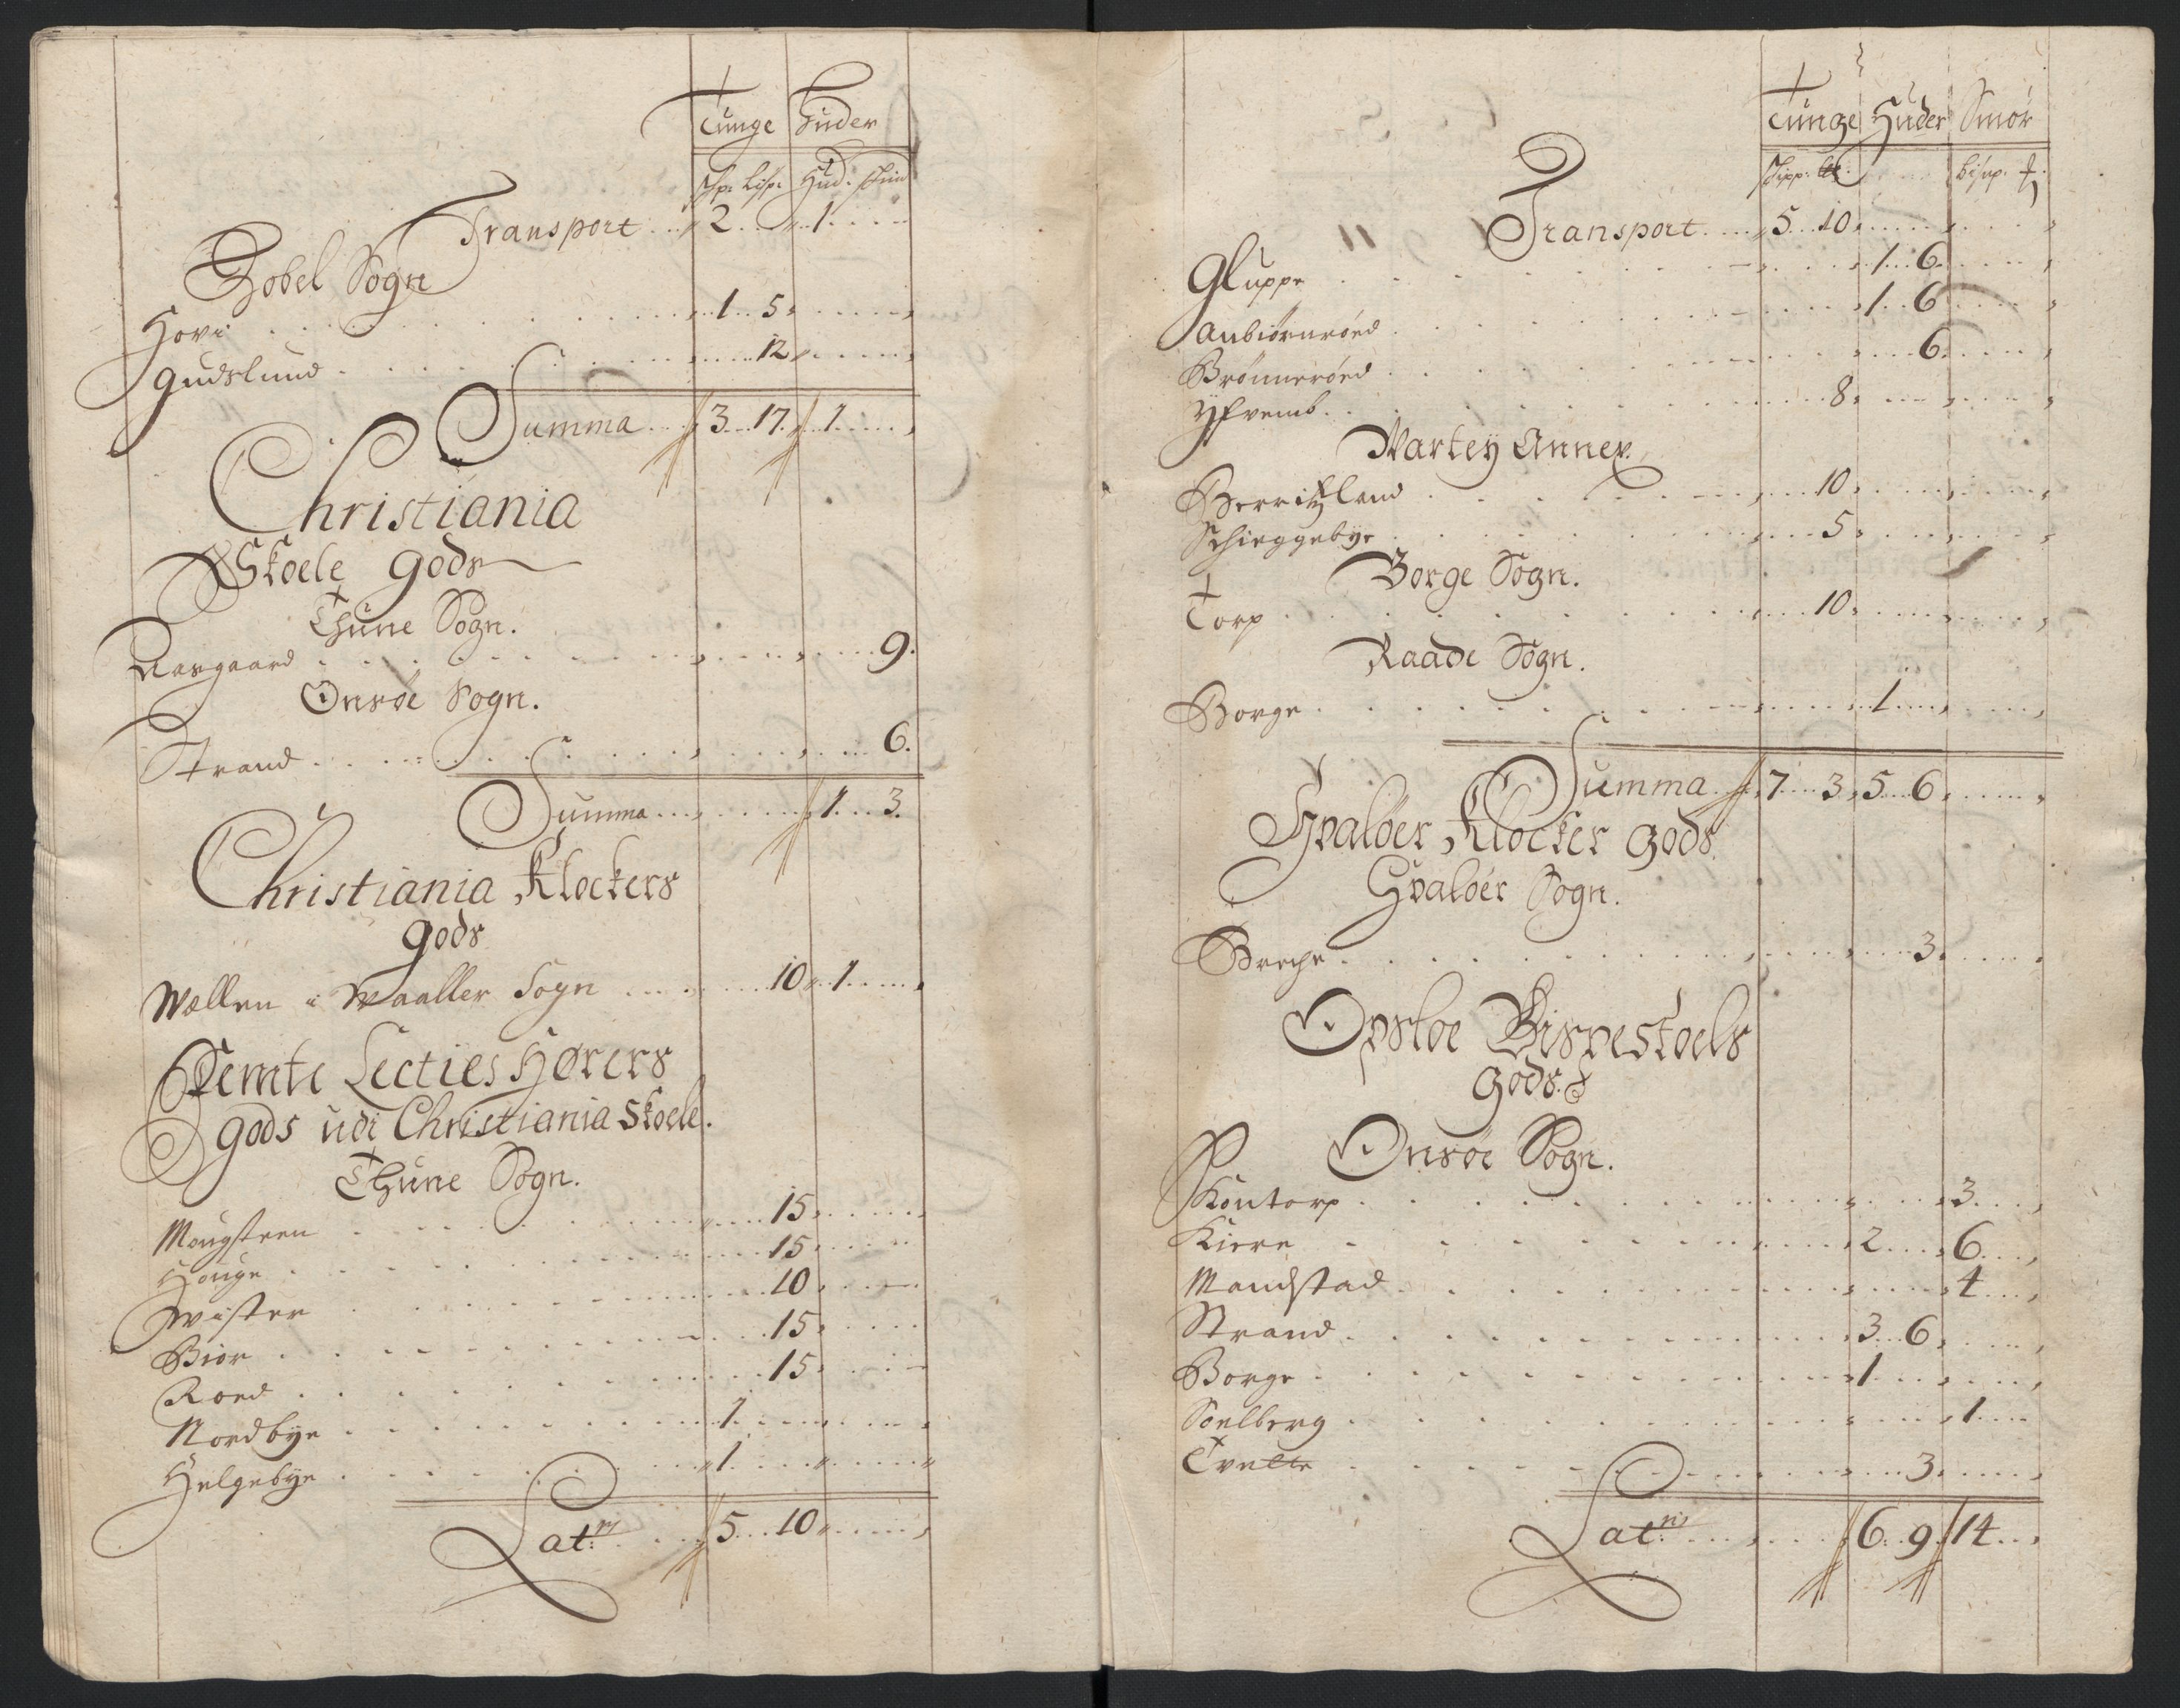 Tunge Huder
Shp: Lisp: Hud: skin
Transport 2 1
Hobel Sogn
Hovi 1 5
Gudslund 12
Summa 3 17 1
Christiania
Skoele gods
Thune Sogn.
Aasgaard 9.
Onsøe Sogn.
Strand 6.
Summa 1 3.
Christiania Klockers
gods
Wællen i Waaller Sogn 10 1
Femte Lecties Hørers
gods udi Christiania Skoele.
Thune Sogn.
Mougsteen 15
Houge 15
Wister 10
Biør 15
Roed 15
Nordbye 1
Helgebye 1
Lat: 5 10
Tunge Huder Smør
Skipp: bisp:
Transport 5 10
Gluppe 1 6
Aubiørnrøed 1 6
Brønnerøed 6
8
Vartey Annex.
Berritzland 10
Schieggebye 5
Borge Sogn.
Torp 10
Raade Sogn.
Borge 1
Summa 7 3 5 6
Hvaløer Klocker gods
Hvaløer Sogn.
Breche 3
Opsloe Bispestoels
gods.
Onsøe Sogn.
Kontorp 3
Kiere 2 6
Mandstad 4
Strand 3 6
Borge 1
Soelberg 1
Tvette 3
Lat: 6 9 14